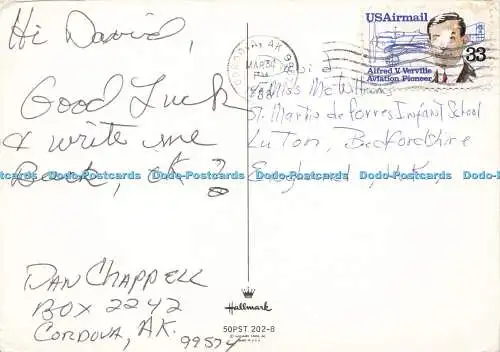 Hi David,
Good Luck
& write me
Back, OK?
DAN CHAPPELL
BOX 2242
CORDOVA, AK.
99574
Hallmark
50PST 202-8
CORDOVA, AK
MAR 31
PM
USAirmail
33
Alfred V. Verville
Aviation Pioneer
David
Miss
St. Martin de Porres Infant School
Luton, Bedfordshire
England, U.K.
Dodo-Postcards Dodo-Postcards Dodo-Postcards Dodo-Postcards